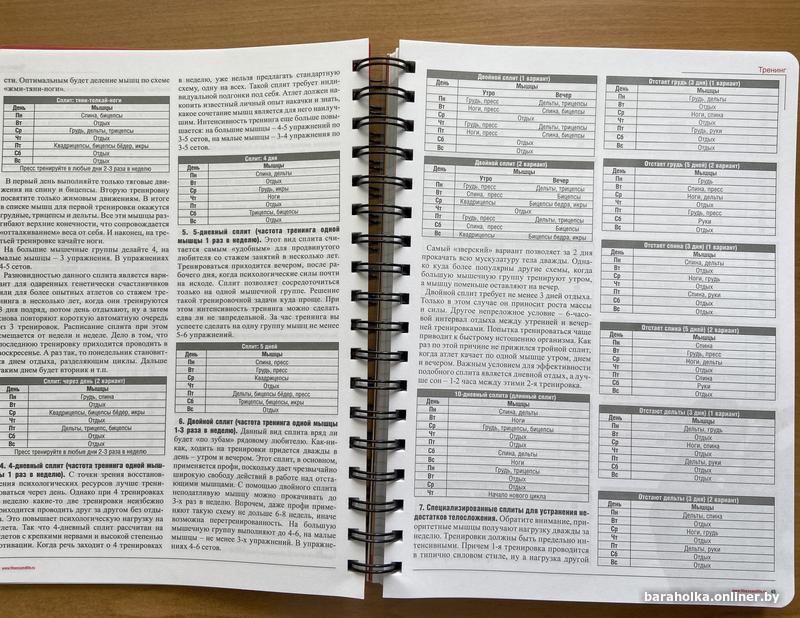 сти. Оптимальным будет деление мышц по схеме
«жми-тяни-ноги».
Сплит: тяни-толкай-ноги
День Мышцы
Пн Спина, бицепсы
Вт Отдых
Ср Грудь, дельты, трицепсы
Чт Отдых
Пт Квадрицепсы, бицепсы бёдер, икры
Сб Отдых
Вс Отдых
Пресс тренируете в любые дни 2-3 раза в неделю
В первый день выполняйте только тяговые дви-
жения на спину и бицепсы. Вторую тренировку
посвятите только жимовым движениям. В итоге
в списке мышц для первой тренировки окажутся
грудные, трицепсы и дельты. Все эти мышцы раз-
гибают верхние конечности, что сопровождается
«отталкиванием» веса от себя. И наконец, на тре-
тьей тренировке качайте ноги.
На большие мышечные группы делайте 4, на
малые мышцы – 3 упражнения. В упражнениях
4-5 сетов.
Разновидностью данного сплита является вари-
ант для одаренных генетически счастливчиков
или для более опытных атлетов со стажем тре-
нинга в несколько лет, когда они тренируются
3 дня подряд, потом день отдыхают, ну а затем
снова повторяют короткую автоматную очередь
из 3 тренировок. Расписание сплита при этом
смещается от недели к неделе. Дело в том, что
последнюю тренировку приходится проводить в
воскресенье. А раз так, то понедельник становит-
ся днем отдыха, разделяющим циклы. Дальше
таким днем будет вторник и т.п.
Сплит: через день (2 вариант)
День Мышцы
Пн Грудь, спина
Вт Отдых
Ср Квадрицепсы, бицепсы бёдер, икры
Чт Отдых
Пт Дельты, трицепс, бицепсы
Сб Отдых
Вс Отдых
Пресс тренируете в любые дни 2-3 раза в неделю
4. 4-дневный сплит (частота тренинга одной мыш-
цы 1 раз в неделю). С точки зрения восстанов-
ления психологических ресурсов лучше трени-
роваться через день. Однако при 4 тренировках
в неделю какие-то две тренировки неизбежно
приходится проводить друг за другом без отды-
ха. Это повышает психологическую нагрузку на
атлета. Так что 4-дневный сплит рассчитан на
атлетов с крепкими нервами и высокой степенью
мотивации. Когда речь заходит о 4 тренировках
www.fitnessandlife.ru
в неделю, уже нельзя предлагать стандартную
схему, одну на всех. Такой сплит требует инди-
видуальной подгонки под себя. Атлет должен на-
копить известный личный опыт накачки и знать,
какое сочетание мышц является для него наилуч-
шим. Интенсивность тренинга еще больше повы-
шается: на большие мышцы – 4-5 упражнений по
3-5 сетов, на малые мышцы – 3-4 упражнения по
3-5 сетов.
Сплит: 4 дня
День Мышцы
Пн Спина, дельты
Вт Отдых
Ср Грудь, икры
Чт Ноги
Пт Отдых
Сб Трицепсы, бицепсы
Вс Отдых
5. 5-дневный сплит (частота тренинга одной
мышцы 1 раз в неделю). Этот вид сплита счи-
тается самым «удобным» для продвинутого
любителя со стажем занятий в несколько лет.
Тренироваться приходится вечером, после ра-
бочего дня, когда психологические силы почти
на исходе. Сплит позволяет сосредоточиться
только на одной мышечной группе. Решение
такой тренировочной задачи куда проще. При
этом интенсивность тренинга можно сделать
едва ли не запредельной. За час тренинга вы
успеете сделать на одну группу мышц не менее
5-6 упражнений.
Сплит: 5 дней
День Мышцы
Пн Спина, пресс
Вт Грудь, пресс
Ср Квадрицепсы
Чт Отдых
Пт Дельты, бицепсы бёдер, пресс
Сб Трицепсы, бицепсы, икры
Вс Отдых
6. Двойной сплит (частота тренинга одной мышцы
1-3 раза в неделю). Данный вид сплита вряд ли
будет «по зубам» рядовому любителю. Как-ни-
как, ходить на тренировки придется дважды в
день – утром и вечером. Этот сплит, в основном,
применяется профи, поскольку дает чрезвычайно
широкую свободу действий в работе над отста-
ющими мышцами. С помощью двойного сплита
неподатливую мышцу можно прокачивать до
3-х раз в неделю. Впрочем, даже профи приме-
няют такую схему не дольше 6-8 недель, иначе
возможна перетренированность. На большую
мышечную группу выполняют до 4-6, на малые
мышцы – не менее 3-х упражнений. В упражне-
ниях 4-6 сетов.
Тренинг
Двойной сплит (1 вариант)
День Мышцы
Утро Вечер
Пн Грудь, пресс Дельты, трицепсы
Вт Ноги, пресс Спина, бицепсы
Ср Отдых
Чт Грудь, пресс Дельты, трицепсы
Пт Ноги, пресс Спина, бицепсы
Сб Отдых
Вс Отдых
Двойной сплит (2 вариант)
День Мышцы
Утро Вечер
Пн Грудь, пресс Дельты, трицепсы
Вт Спина, пресс Бицепсы
Ср Квадрицепсы Бицепсы бедра, икры
Чт Отдых
Пт Грудь, пресс Дельты, трицепсы
Сб Спина, пресс Бицепс
Вс Квадрицепсы Бицепсы бедра, икры
Самый «зверский» вариант позволяет за 2 дня
прокачать всю мускулатуру тела дважды. Одна-
ко куда более популярны другие схемы, когда
большую мышечную группу тренируют утром,
а мышцу поменьше оставляют на вечер.
Двойной сплит требует не менее 3 дней отдыха.
Только в этом случае он приносит рост массы
и силы. Другое непреложное условие – 6-часо-
вой интервал отдыха между утренней и вечер-
ней тренировками. Попытка тренироваться чаще
приводит к быстрому истощению организма. Как
раз по этой причине не прижился тройной сплит,
когда атлет качает по одной мышце утром, днем
и вечером. Важным условием для эффективности
подобного сплита является дневной отдых, а луч-
ше сон – 1-2 часа между этими 2-я тренировками.
10-дневный сплита (длинный сплит)
День Мышцы
Пн Спина, дельты
Вт Отдых
Ср Ноги
Чт Отдых
Пт Грудь, трицепсы, бицепсы
Сб Отдых
Вс Спина, дельты
Пн Отдых
Вт Ноги
Ср Грудь, трицепсы
Чт Отдых
Чт Начало нового цикла
7. Специализированные сплиты для устранения не-
достатков телосложения. Обратите внимание, при-
оритетные мышцы получают нагрузку дважды за
неделю. Тренировки должны быть предельно ин-
тенсивными. Причем 1-я тренировка проводится
в типично силовом стиле, ну а нагрузка другой
Отстает грудь (3 дня) (1 вариант)
День Мышцы
Пн Грудь, дельты
Вт Отдых
Ср Ноги, спина
Чт Отдых
Пт Грудь, руки
Сб Отдых
Вс Отдых
Отстает грудь (5 дней) (2 вариант)
День Мышцы
Пн Грудь
Вт Спина, пресс
Ср Ноги, дельты
Чт Отдых
Пт Грудь, пресс
Сб Руки
Вс Отдых
Отстает спина (3 дня) (1 вариант)
День Мышцы
Пн Спина, дельты
Вт Отдых
Ср Ноги, грудь
Чт Отдых
Пт Спина, руки
Сб Отдых
Вс Отдых
Отстает спина (5 дней) (2 вариант)
День Мышцы
Пн Спина
Вт Грудь, пресс
Ср Ноги, дельты
Чт Отдых
Пт Спина
Сб Руки
Вс Отдых
Отстают дельты (3 дня) (1 вариант)
День Мышцы
Пн Дельты, грудь
Вт Отдых
Ср Ноги, спина
Чт Отдых
Пт Дельты, руки
Сб Отдых
Вс Отдых
Отстают дельты (3 дня) (2 вариант)
День Мышцы
Пн Дельты, спина
Вт Отдых
Ср Ноги, грудь
Чт Отдых
Пт Дельты, руки
Сб Отдых
Вс Отдых
baraholka.onliner.by